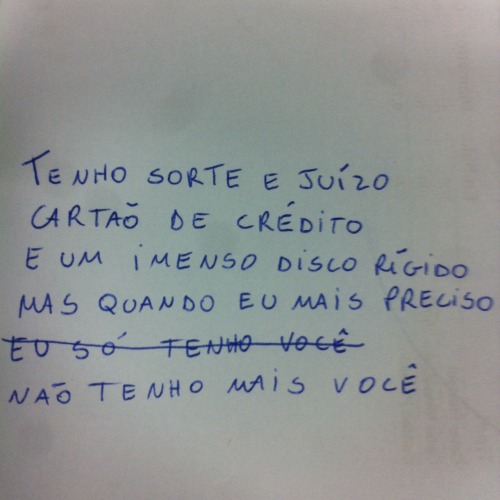 TENHO SORTE E JUÍZO
CARTAÕ DE CRÉDITO
E UM IMENSO DISCO RÍGIDO
MAS QUANDO EU MAIS PRECISO
EU SÓ TENHO VOCÊ
NÃO TENHO MAIS VOCÊ